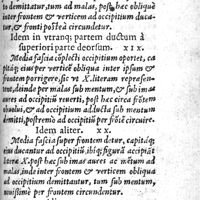 to demittatur, tum ad malas, post hęc obliquè
inter frontem & verticem ad occipitium ducatur
& fronti postera circundetur.
Idem in vtranq; partem ductum à
superiori parte deorsum. XIX.
Media fascia cõplecti occipitium oportet, capitq;
eius per verticẽ obliqua inter ipsum &
frontem porrigere, sic vt X. literam repræsentent,
deinde per malas sub mentum, & ad
occipitium reuerti, post hæc circa frõtem
inuolui, ad occipitium adducta sub mentum
mitti, postremò ad occipitiũ per frõtẽ circũire.
Idem aliter. XX.
Media fascia super frontem detur, capitaq;
eius ducantur ad occipitiũ, ibiq; figurã accipiãt
literæ X. post hæc sub imas aures ac mentum ad
malas, inde inter frontem & verticem obliqua
ad occipitium demittantur, tum sub mentum,
nouissimè per frontem circundentur.